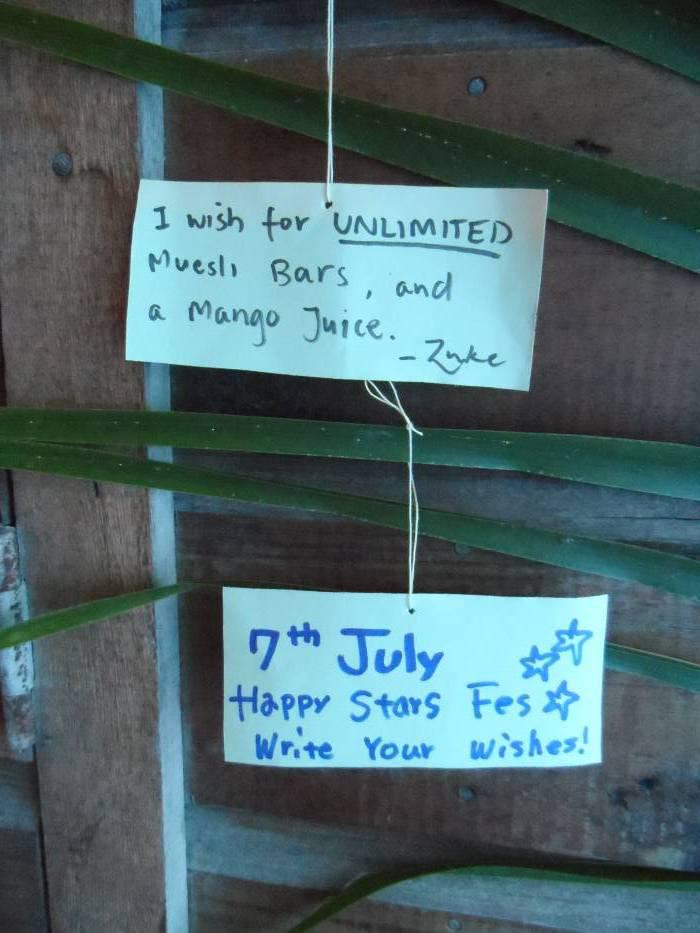 I wish for UNLIMITED
Muesli Bars, and
a Mango Juice.
- Zuke
7th July
Happy Stars Fes
Write Your Wishes!